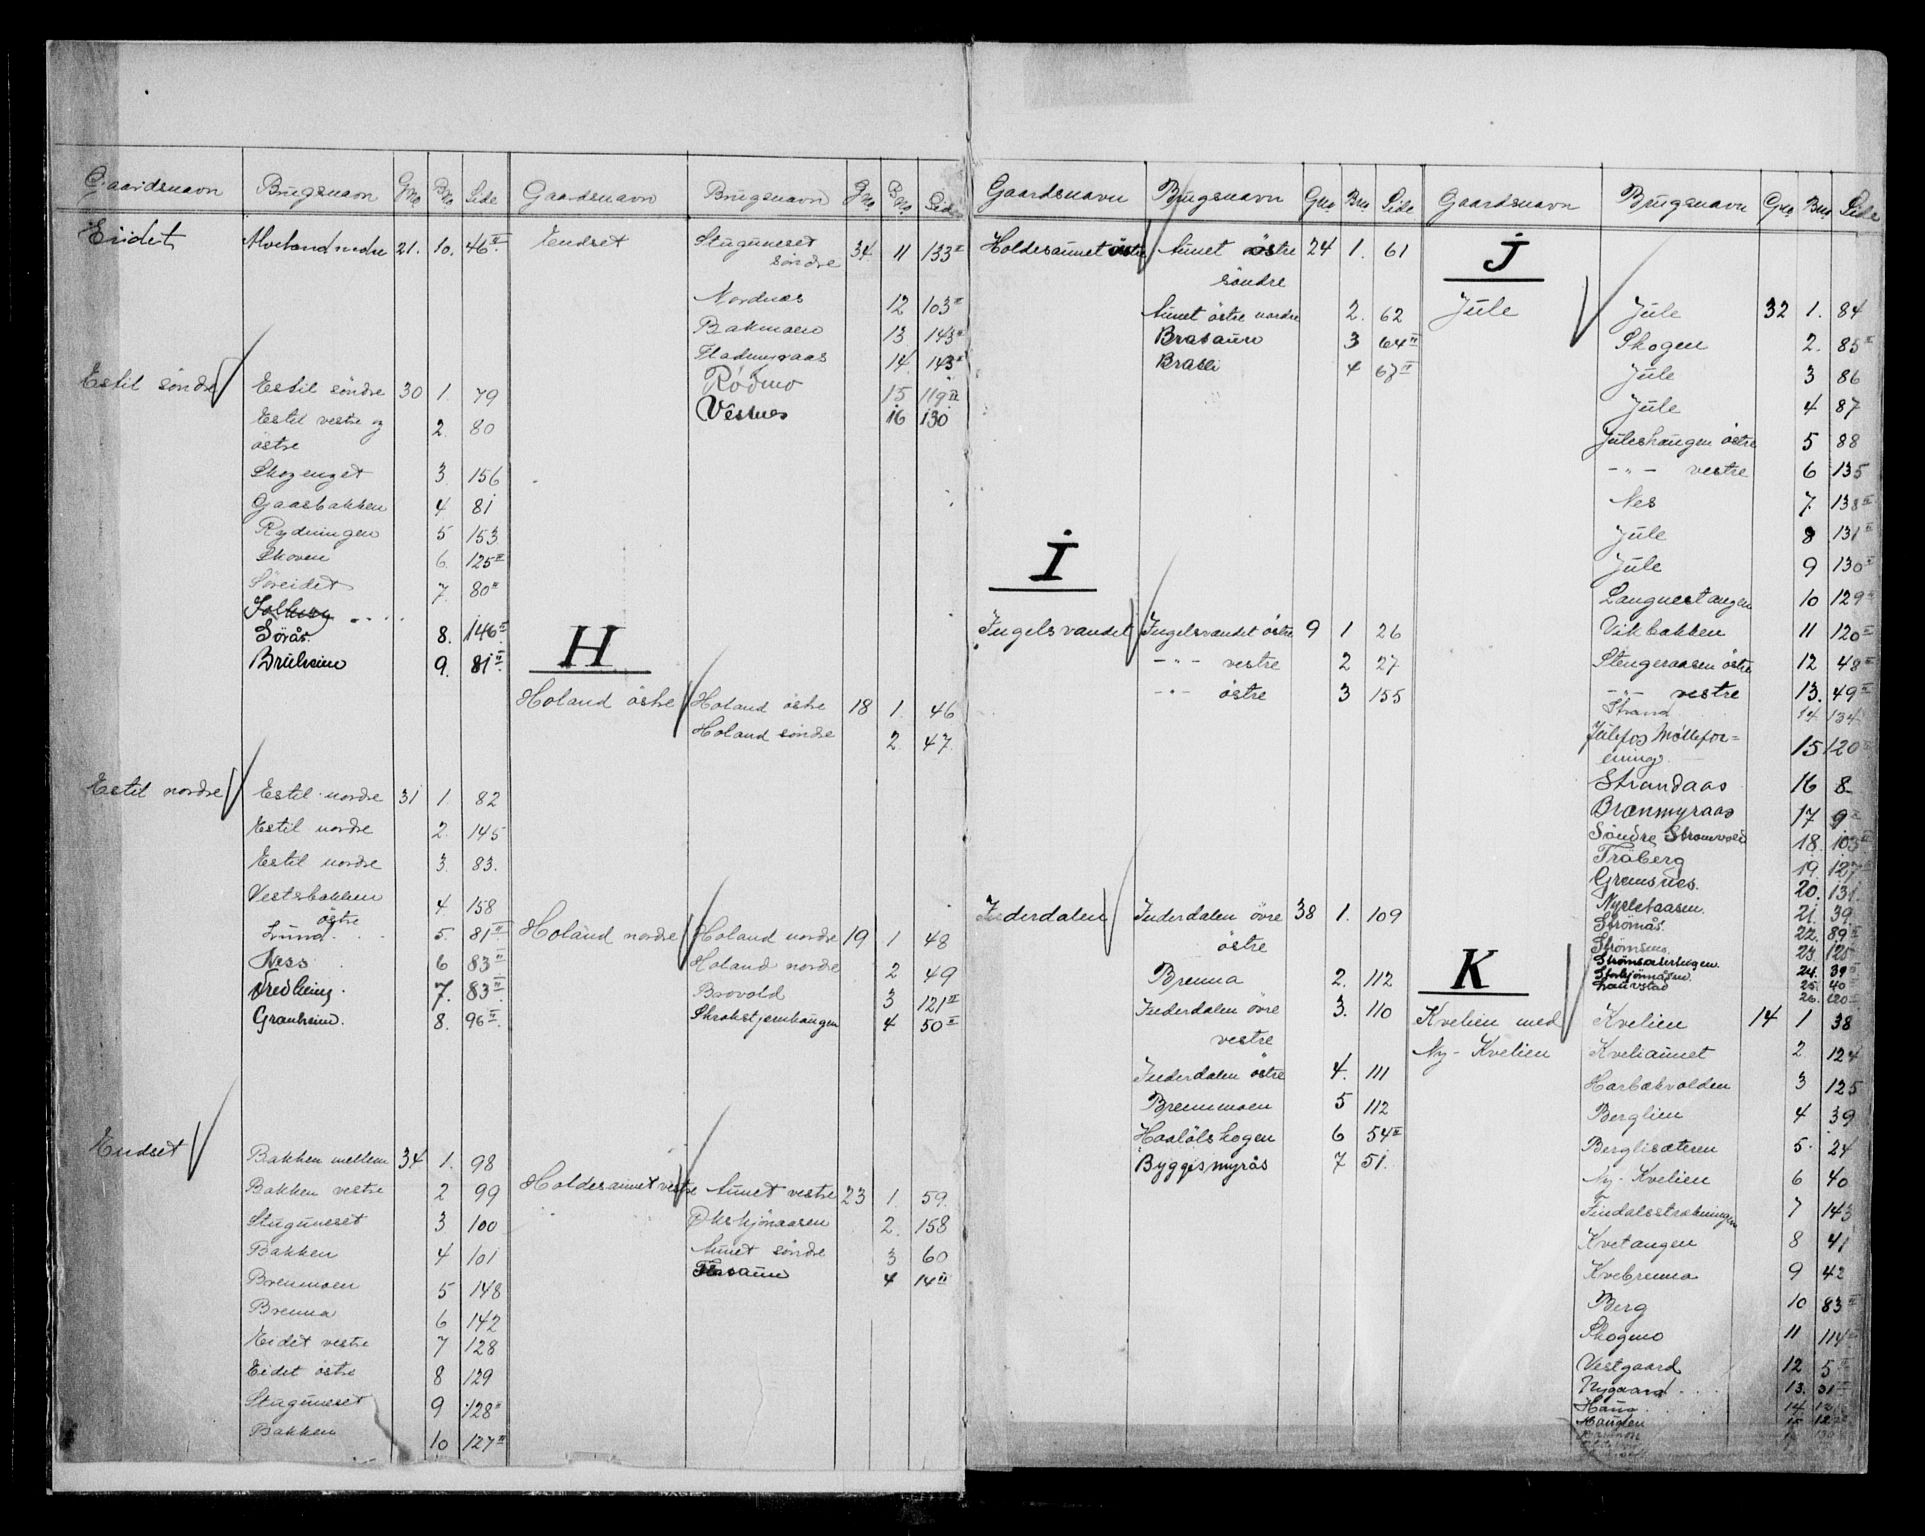 Gaardsnavn Brugsnavn Gno Bno Side
Eidet Alveland nedre 21. 10. 46 II
Estil söndre Estil söndre 30 1. 79
Estil vestre og 2. 80
östre
Skogenget 3. 156
Gaasbakken 4 81
Rydningen 5 153
Skoven 6. 125 II
Söreidet 7. 80 II
Solberg
Sörås. 8. 146 II
Bruheim 9. 81 II
Estil nordre Estil nordre 31 1. 82
Estil nordre 2. 145
Estil nordre 3. 83.
Vestsbakken 4. 158
östre
Lund 5. 81 II
Ness 6 83 II
Fredheim. 7. 83 II
Granheim. 8. 96 II
Endset Bakken mellem 34 1. 98
Bakken vestre 2 99
Stuguneset 3 100
Bakken 4 101
Brenmoen 5 148
Brenna 6 142
Eidet vestre 7 128
Eidet östre 8 129
Stuguneset 9 128 II
Bakken 10 127 II
Gaardsnavn Brugsnavn Gno. Bno. Side
Endset Stuguneset 34 11 133 II
söndre
Nordnes 12 103 II
Bakmoen 13 143 II
Fladmyraas 14 143 II
Rödmo 15 119 II
Vestnes 16 130
H
Holand östre Holand östre 18 1. 46
Holand söndre 2. 47
Holand nordre Holand nordre 19 1 48
Holand nordre 2 49
Barvold 3 121 II
Skrokstjernhaugen 4 50 II
Holdesaunet vestre Aunet vestre 23 1. 59.
Ökskjönaasen 2. 158
Aunet söndre 3 60
4 14 II
Gaardsnavn Brugsnavn Gno Bno. Side
Holdesaunet östre Aunet östre 24 1. 61
söndre
Aunet östre nordre 2. 62
Brasaun 3 64 II
Brasli 4 67 II
I
Ingelsvandet Ingelsvandet östre 9 1 26
-"- vestre 2 27
-"- östre 3 155
Inderdalen Inderdalen övre 38 1. 109
östre
Brenna 2. 112
Inderdalen övre 3. 110
vestre
Inderdalen östre 4. 111
Brenmoen 5 112
Haalölskogen 6 54 II
Byggismyrås 7 51.
Gaardsnavn Brugsnavn Gno Bno Side
J
Jule Jule 32 1. 84
Skogen 2. 85 II
Jule 3 86
Jule 4 87
Juleshaugen östre 5 88
-"- vestre 6 135
Nes 7 138 II
Jule 8 131 II
Jule 9 130 II
Langnestangen 10 129 II
Vikbakken 11 120 II
Stengeraasen östre 12 48 II
-"- vestre 13. 49 II
Strand 14 134
Julefos Mölleför= 15 120 II
ening.
Strandaas 16 8
Brænmyraas 17 9 II
Söndre Strömvold 18. 103 II
Tröberg 19. 127
Gremsnes. 20. 131
21. 39
Strömås. 22. 89 II
Strömsnes 23. 125
Strömsæterhögen. 24. 39 II
25. 40
Lauvstad 26. 120 II
K
Kvelien med Kvelien 14 1 38
Ny-Kvelien Kveliaunet 2 124
Harbakvolden 3 125
Berglien 4 39
Berglisæteren 5. 24
Ny-Kvelien 6 40
Findalsstrækningen 7 143
Kvetangen 8 41
Kvebrenna 9 42
Berg 10 83 II
Skogmo 11 114 II
Vestgaard 12 5 II
Nygaard 13. 31 II
Haug 14.
Hauglen 15